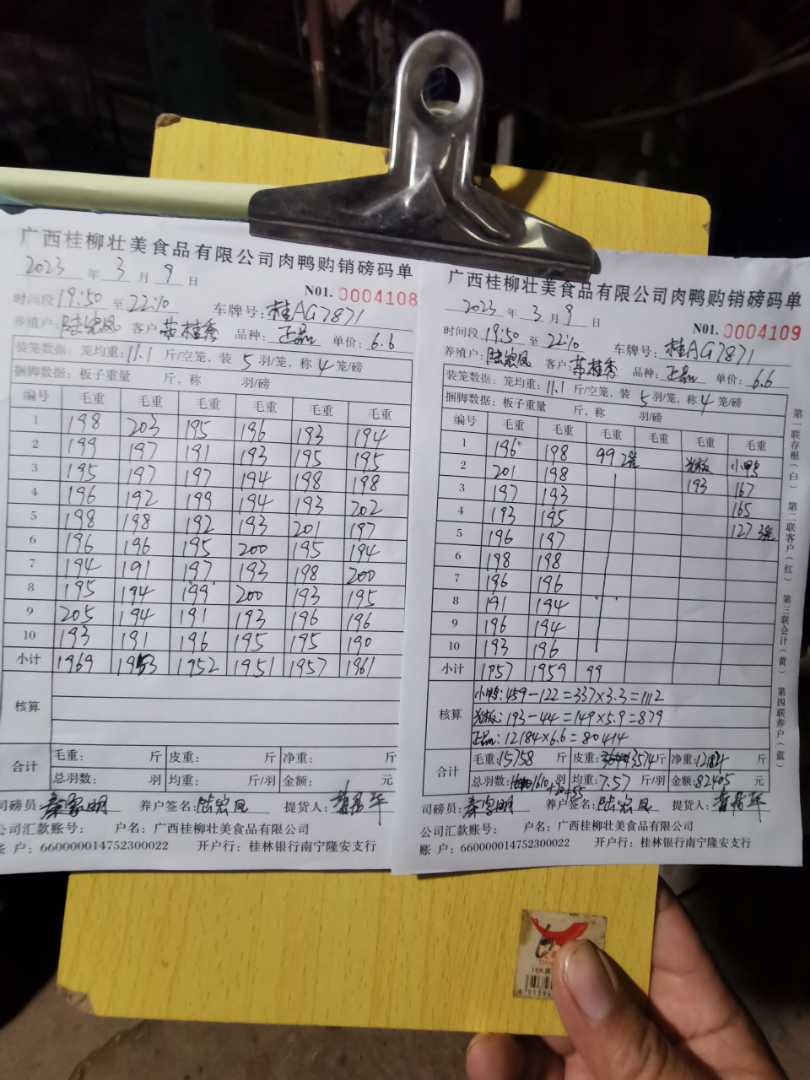 广西桂柳壮美食品有限公司肉鸭购销磅码单
2023 年 3 月 9 日
N01. 0004108
时间段 19:50 至 22:10 车牌号: 桂AG7871
养殖户: 陆宏凤 客户 苏桂秀 品种: 正品 单价: 6.6
装笼数据: 笼均重: 11.1 斤/空笼, 装 5 羽/笼, 称 4 笼/磅
捆脚数据: 板子重量 斤, 称 羽/磅
编号 毛重 毛重 毛重 毛重 毛重 毛重
1 198 203 195 196 193 194
2 199 197 191 193 195 195
3 195 197 197 194 198 198
4 196 192 199 194 193 202
5 198 198 192 193 201 197
6 196 196 195 200 195 194
7 194 191 197 193 198 200
8 195 194 199 200 193 195
9 205 194 191 193 196 196
10 193 191 196 195 195 190
小计 1969 1953 1952 1951 1957 1961
核算
合计 毛重: 斤 皮重: 斤 净重: 斤
总羽数: 羽 均重: 斤/羽 金额: 元
司磅员: 养户签名: 陆宏凤 提货人:
公司汇款账号: 户名: 广西桂柳壮美食品有限公司
账 户: 660000014752300022 开户行: 桂林银行南宁隆安支行
广西桂柳壮美食品有限公司肉鸭购销磅码单
2023 年 3 月 9 日
N01. 0004109
时间段 19:50 至 22:10 车牌号: 桂AG7871
养殖户: 陆宏凤 客户 苏桂秀 品种: 正品 单价: 6.6
装笼数据: 笼均重: 11.1 斤/空笼, 装 5 羽/笼, 称 4 笼/磅
捆脚数据: 板子重量 斤, 称 羽/磅
编号 毛重 毛重 毛重 毛重 毛重 毛重
1 196 198 99 2笼
2 201 198 光板 小鸭
3 197 193 193 167
4 193 195 165
5 196 197 127 3笼
6 198 198
7 196 196
8 191 194
9 196 194
10 193 196
小计 1957 1959 99
核算 小鸭: 459-122=337×3.3=1112
光板: 193-44=149×5.9=879
正品: 12184×6.6=80414
合计 毛重: 15758 斤 皮重: 3574 斤 净重: 12184 斤
总羽数: 1610 羽 +20+55 均重: 7.57 斤/羽 金额: 82405 元
司磅员: 养户签名: 陆宏凤 提货人:
公司汇款账号: 户名: 广西桂柳壮美食品有限公司
账 户: 660000014752300022 开户行: 桂林银行南宁隆安支行
第一联存根(白) 第二联客户(红) 第三联会计(黄) 第四联养户(蓝)